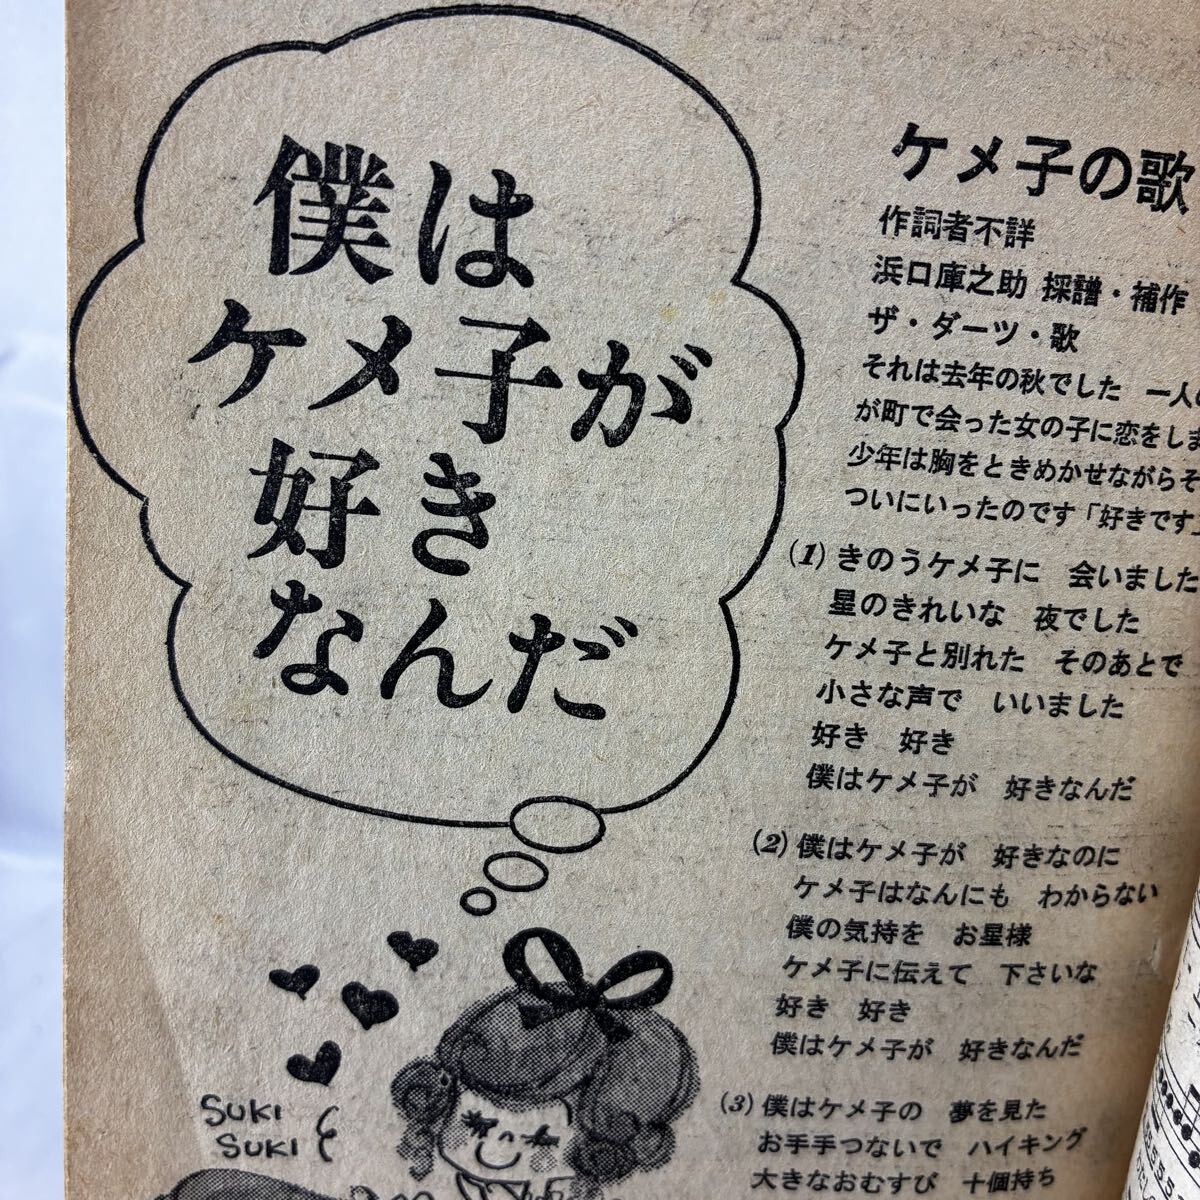 僕は
ケメ子が
好き
なんだ
ケメ子の歌
作詞者不詳
浜口庫之助 採譜・補作
ザ・ダーツ・歌
それは去年の秋でした 一人の
が町で会った女の子に恋をしま
少年は胸をときめかせながらそ
ついにいったのです「好きです」
(1) きのうケメ子に 会いました
星のきれいな 夜でした
ケメ子と別れた そのあとで
小さな声で いいました
好き 好き
僕はケメ子が 好きなんだ
(2) 僕はケメ子が 好きなのに
ケメ子はなんにも わからない
僕の気持を お星様
ケメ子に伝えて 下さいな
好き 好き
僕はケメ子が 好きなんだ
(3) 僕はケメ子の 夢を見た
お手手つないで ハイキング
大きなおむすび 十個持ち
SUKI
SUKI